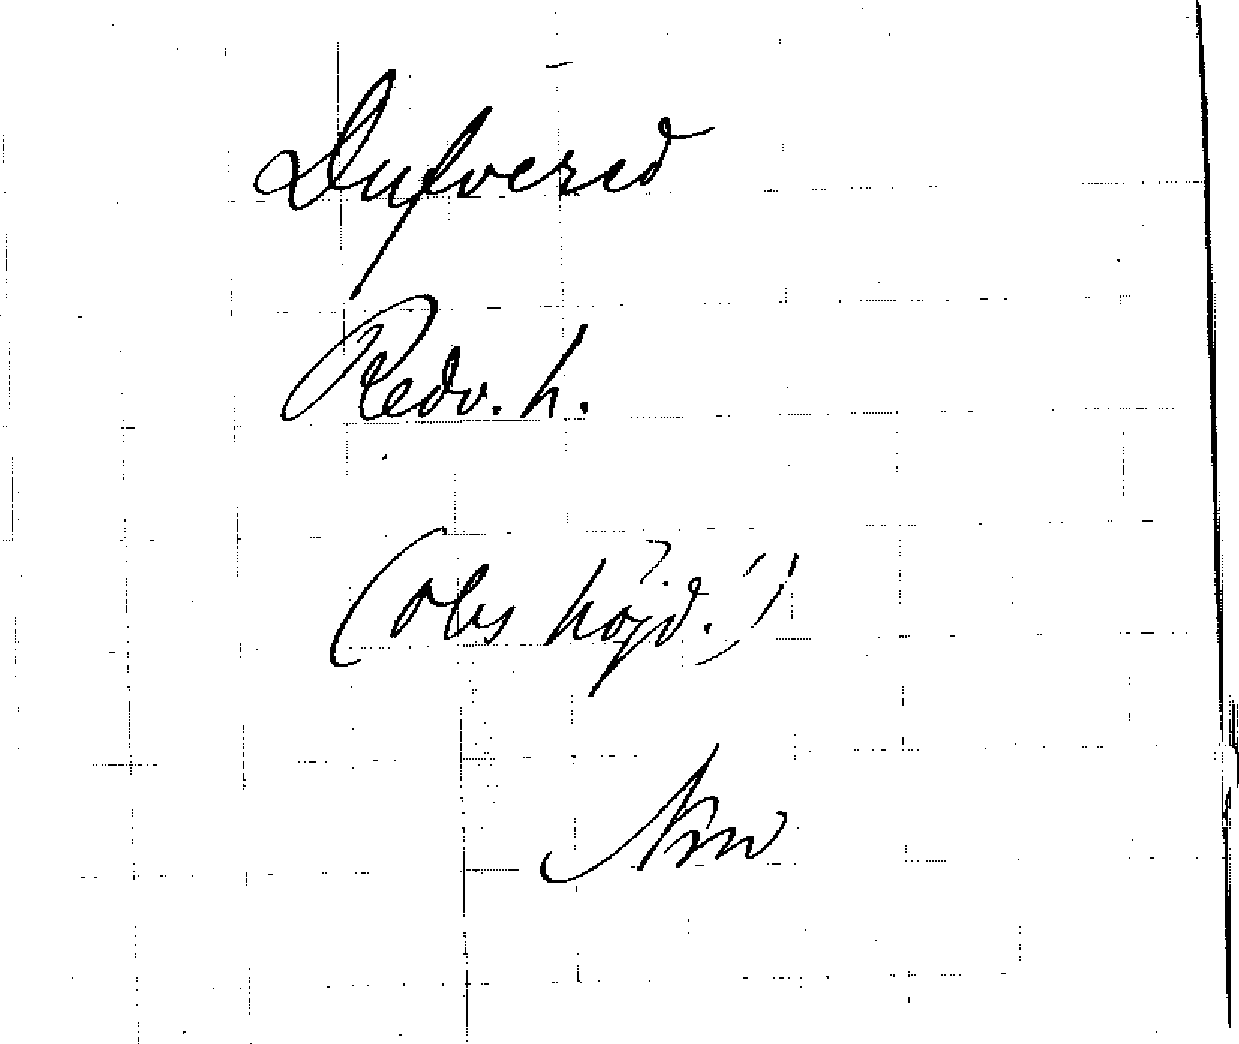 Dufvered
Redv. h.
(obs höjd.!)